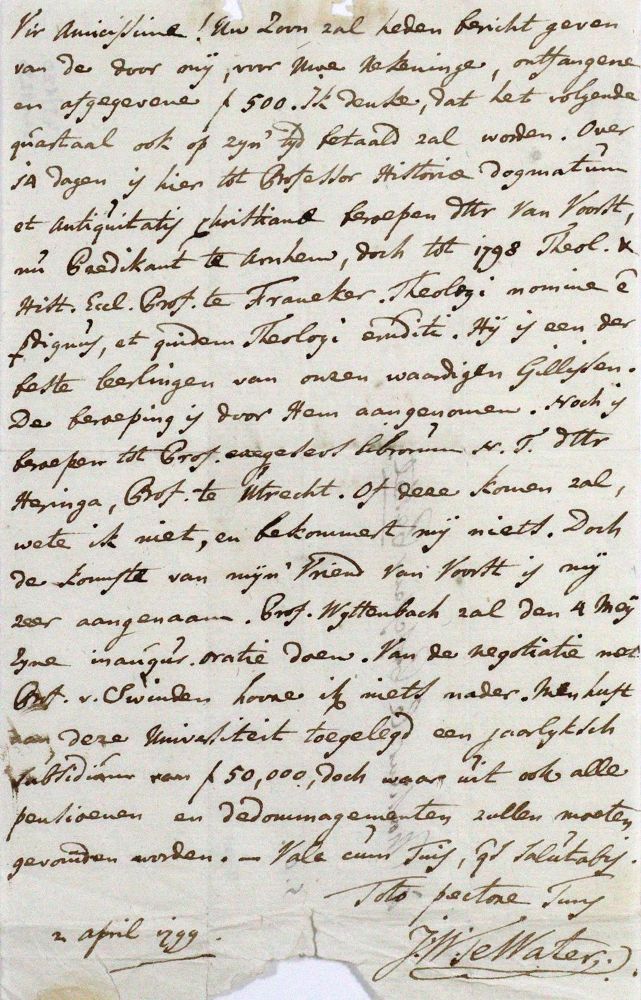 Vir Amicissime! Uw Zoon zal heden bericht geven
van de door mij, voor Uwe Rekeninge, ontfangene
en afgegevene f 500. Ik denke, dat het volgende
quartaal ook op zyn' tyd betaald zal worden. Over
14 dagen is hier tot Professor Historiae dogmatum
et Antiquitatis Christianae beroepen dHr Van Voorst,
nu Predikant te Arnhem, doch tot 1798 Theol. &
Hist. Eccl. Prof. te Franeker. Theologi nomine
dignus, et quidem Theologi eruditi. Hij is een der
beste leerlingen van onzen waardigen Gillissen.
De beroeping is door Hem aangenomen. Noch is
beroepen tot Prof. exegeseos librorum N. T. dHr
Heringa, Prof. te Utrecht. Of deze komen zal,
wete ik niet, en bekommert mij niets. Doch
de komste van mijn' Vriend Van Voorst is mij
zeer aangenaam. Prof. Wyttenbach zal den 4 Meij
zyne inaugur. oratie doen. Van de negotiatie met
Prof. v. Swinden hoore ik niets nader. Men heeft
aan deze Universiteit toegelegd een jaarlyksch
subsidium van f 50,000, doch waar uit ook alle
pensioenen en dedommagementen zullen moeten
gevonden worden. — Vale cum Tuis, qs salutabis.
Toto pectore Tuus
2 April 1799.
J. W. Te Water